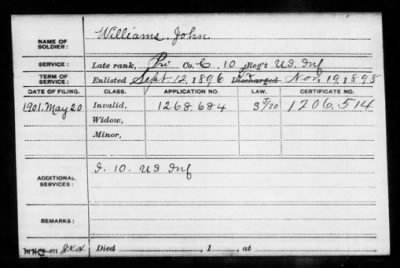 NAME OF SOLDIER: Williams, John
SERVICE: Late rank, Pri Co. C, 10 Reg't US Inf
TERM OF SERVICE: Enlisted Sept. 12, 1896 Discharged Nov. 19, 1898
DATE OF FILING. CLASS. APPLICATION NO. LAW. CERTIFICATE NO.
1901, May 20 Invalid, 1268.684 1206.514
Widow,
Minor,
ADDITIONAL SERVICES: 10. US Inf
REMARKS:
Died , 1 , at